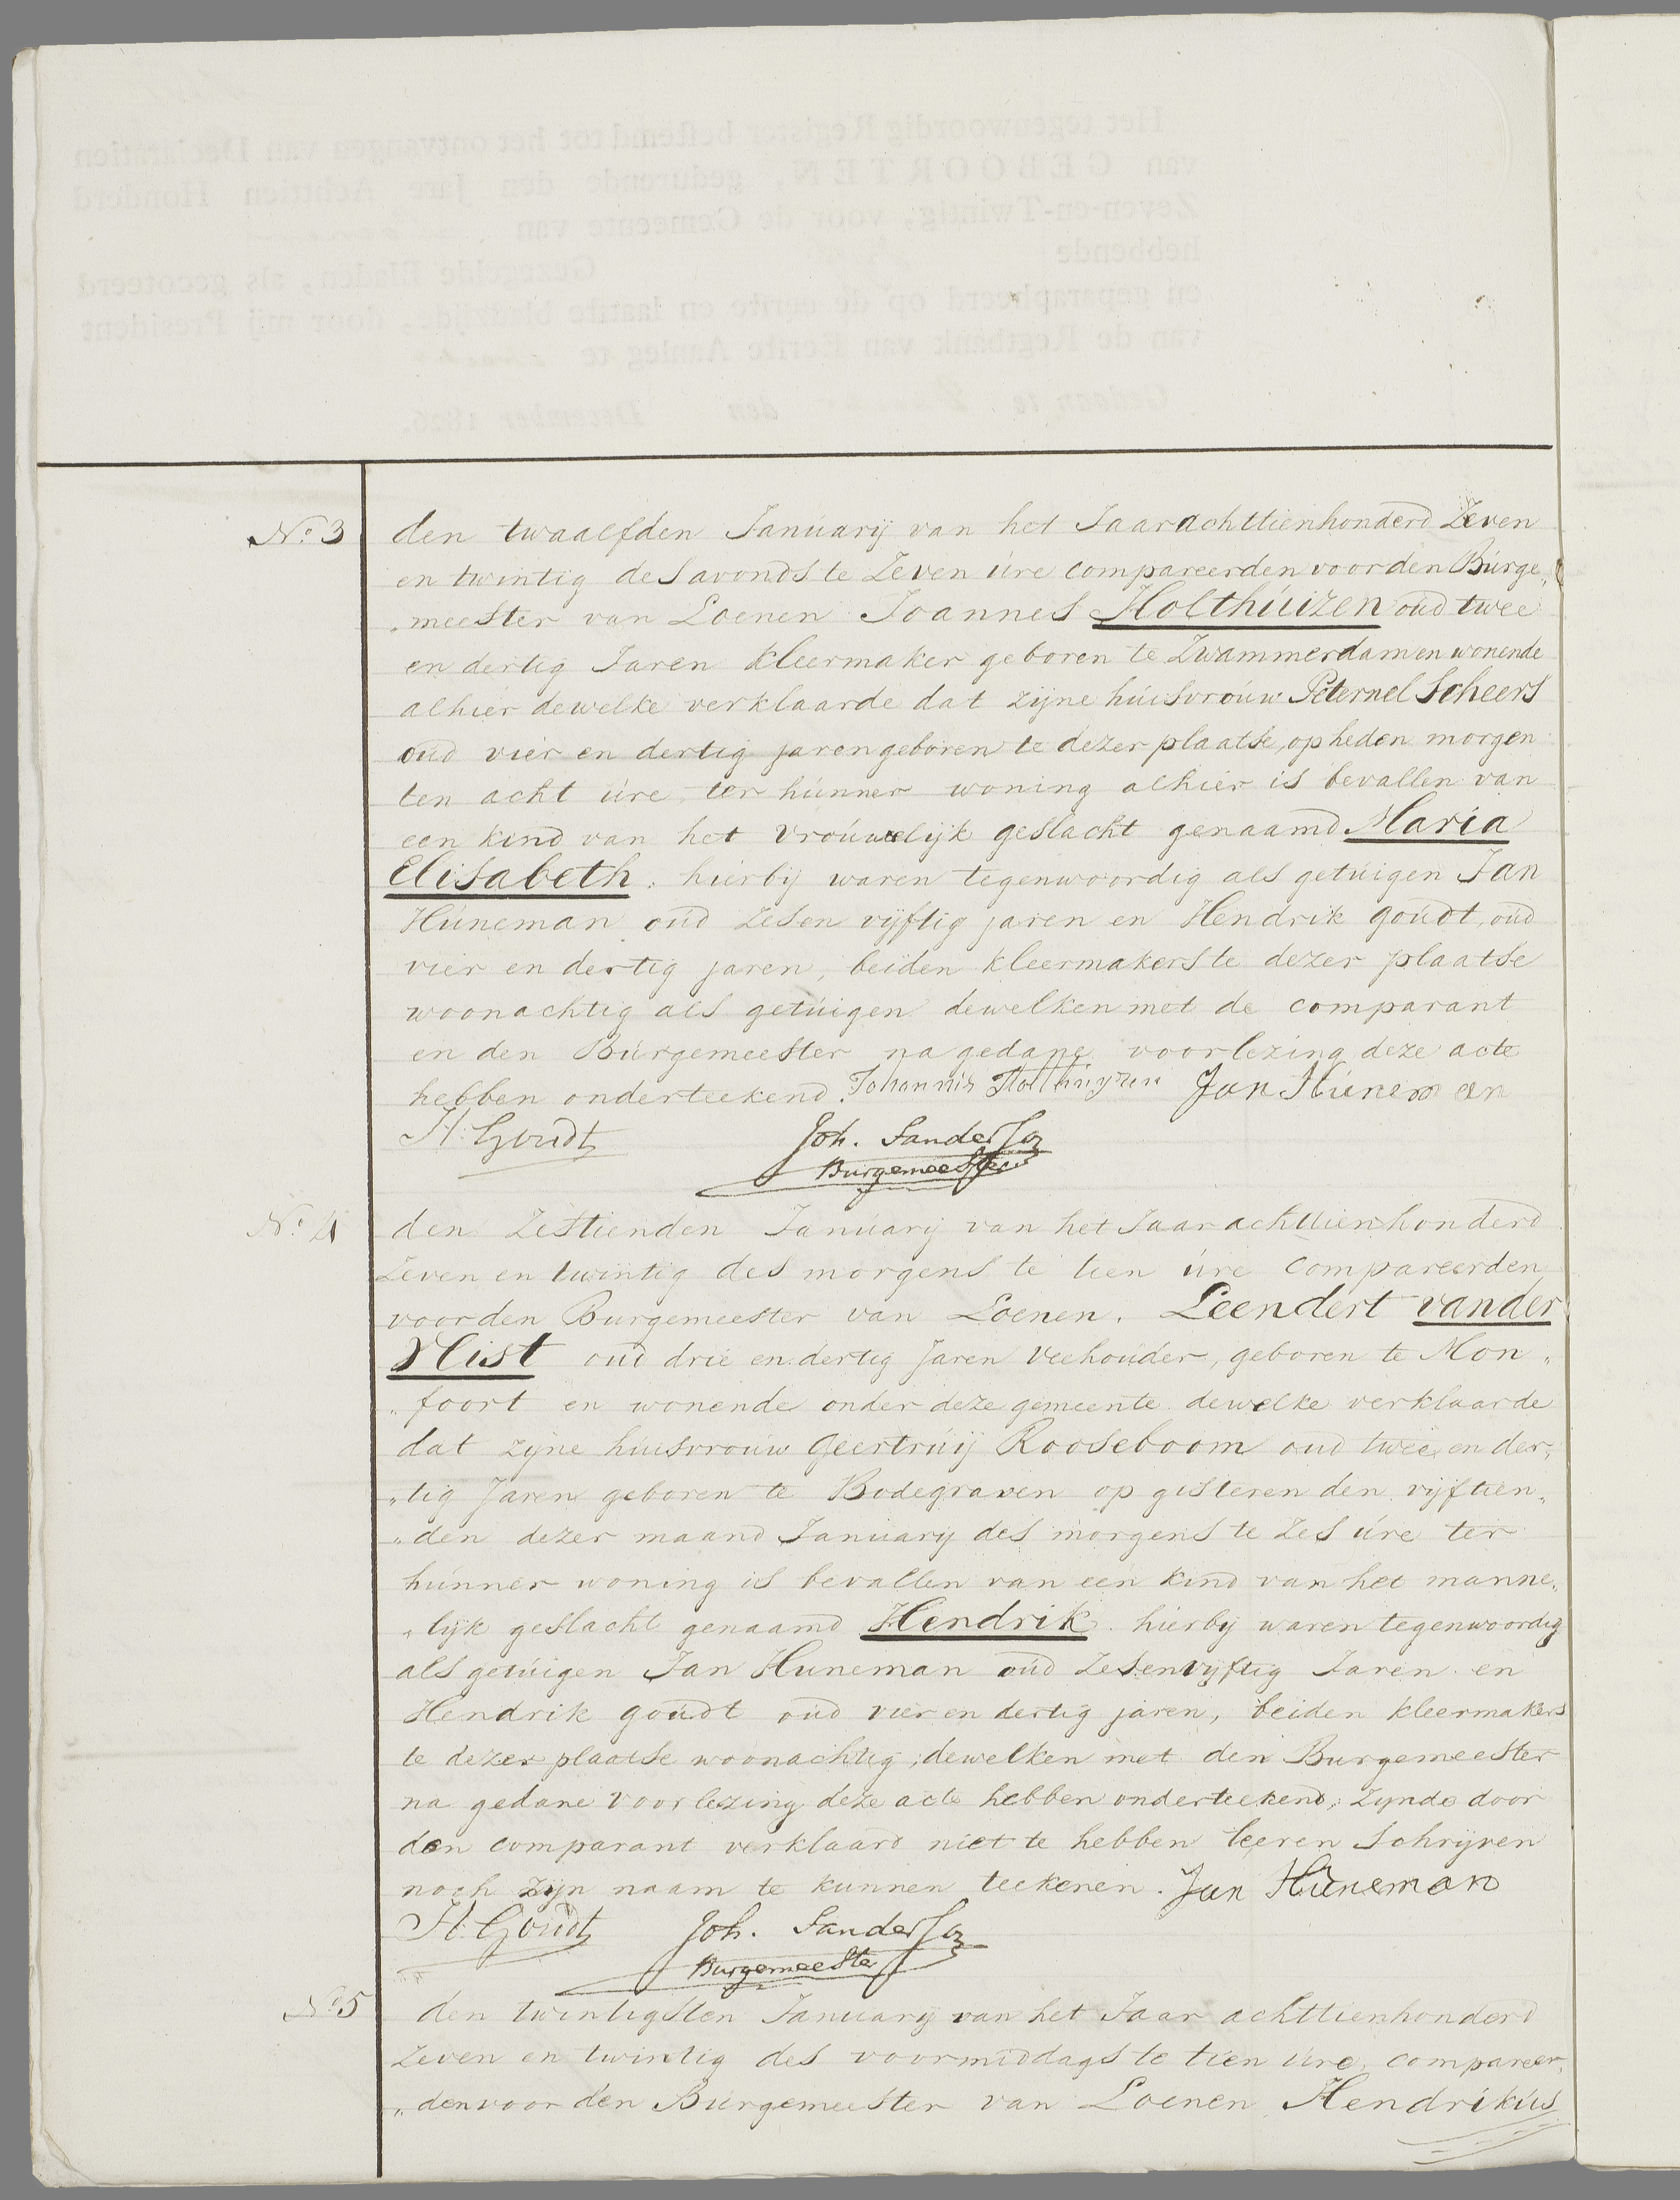 No. 3
den twaalfden Januarij van het Jaar achttienhonderd Zeven
en twintig des avonds te Zeven úre compareerden voor den Búrge„
„meester van Loenen Joannes Holthúizen oúd twee
en dertig Jaren kleermaker geboren te Zwammerdam en wonende
alhier dewelke verklaarde dat zijne húisvroúw Peternel Scheers
oúd vier en dertig jaren geboren te dezer plaatse, op heden morgen
ten acht úre ter húnner woning alhier is bevallen van
een kind van het vroúwelijk geslacht genaamd Maria
Elisabeth. hierbij waren tegenwoordig als getúigen Jan
Húneman oúd Zes en vijftig jaren en Hendrik goúdt, oúd
vier en dertig jaren, beiden kleermakers te dezer plaatse
woonachtig als getúigen dewelken met de comparant
en den Búrgemeester na gedane voorlezing deze acte
hebben onderteekend. Johannis Holthuyzen Jan Húneman
H: Goudt Joh. Sanderson
Búrgemeester
No. 4
den Zestienden Janúarij van het Jaar achttienhonderd
Zeven en twintig des morgens te tien úre compareerden
voor den Burgemeester van Loenen. Leendert vander
Nist oúd drie en dertig Jaren Veehoúder, geboren te Mon„
„foort en wonende onder deze gemeente dewelke verklaarde
dat zijne húisvroúw Geertrúij Rooseboom oud twee en der„
„tig Jaren geboren te Bodegraven op gisteren den vijftien„
„den dezer maand Januarij des morgens te Zes úre ter
húnner woning is bevallen van een kind van het manne„
„lijk geslacht genaamd Hendrik. hierbij waren tegenwoordig
als getúigen Jan Huneman oúd Zes en vijftig Jaren en
Hendrik goúdt oúd vier en dertig jaren, beiden kleermakers
te dezer plaatse woonachtig, dewelken met den Burgemeester
na gedane voorlezing deze acte hebben onderteekend, Zynde door
den comparant verklaard niet te hebben leeren Schrijven
noch zijn naam te kunnen teekenen. Jan Húneman
H: Goudt Joh. Sanderson
Burgemeester
No 5
den twintigsten Januarij van het Jaar achttienhonderd
Zeven en twintig des voormiddags te tien úre, compareer„
„den voor den Búrgemeester van Loenen Hendrikús